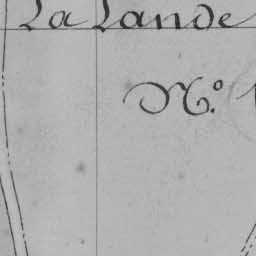 La Lande
N.º